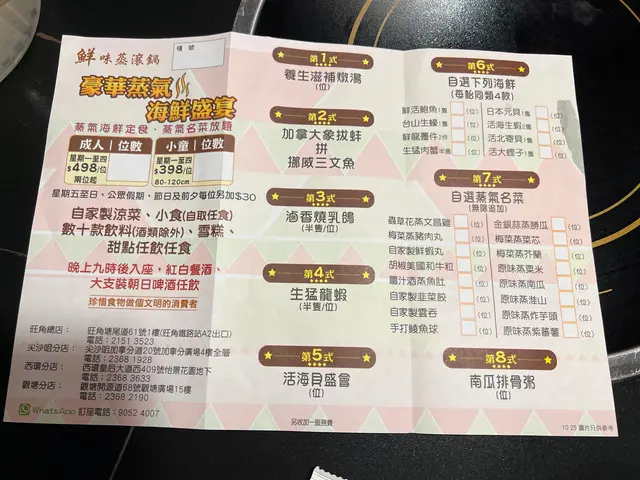 鮮味蒸滾鍋
檯號
豪華蒸氣
海鮮盛宴
蒸氣海鮮定食．蒸氣名菜放題
成人 位數
星期一至四
$498/位
兩位起
小童 位數
星期一至四
$398/位
80-120cm
星期五至日、公眾假期，節日及前夕每位另加$30
自家製涼菜、小食(自取任食)
數十款飲料(酒類除外)、雪糕、
甜點任飲任食
晚上九時後入座，紅白餐酒、
大支裝朝日啤酒任飲
珍惜食物做個文明的消費者
旺角總店： 旺角塘尾道61號1樓(旺角鐵路站A2出口)
電話：2151 3523
尖沙咀分店： 尖沙咀加拿分道20號加拿分廣場4樓全層
電話：2368 1928
西環分店： 西環皇后大道西409號怡景花園地下
電話：2368 3633
觀塘分店： 觀塘開源道68號觀塘廣場15樓
電話：2368 2190
WhatsApp 訂座電話：9052 4007
第1式
養生滋補燉湯
(位)
第2式
加拿大象拔蚌
拼
挪威三文魚
第3式
滷香燒乳鴿
(半隻/位)
第4式
生猛龍蝦
(半隻/位)
第5式
活海貝盛會
(位)
另收加一服務費
第6式
自選下列海鮮
(每枱同類4款)
鮮活鮑魚1隻 (位) 日本元貝1隻 (位)
台山生蠔1隻 (位) 活海生蝦2隻 (位)
鮮龍躉件2件 (位) 活北寄貝1隻 (位)
生猛肉蟹半隻 (位) 活大蟶子1隻 (位)
第7式
自選蒸氣名菜
(無限追加)
蟲草花蒸文昌雞 (位) 金銀蒜蒸勝瓜 (位)
梅菜蒸豬肉丸 (位) 梅菜蒸菜芯 (位)
自家製鮮蝦丸 (位) 梅菜蒸芥蘭 (位)
胡椒美國和牛粒 (位) 原味蒸粟米 (位)
薑汁酒蒸魚肚 (位) 原味蒸南瓜 (位)
自家製韭菜餃 (位) 原味蒸淮山 (位)
自家製雲吞 (位) 原味蒸炸芋頭 (位)
手打鯪魚球 (位) 原味蒸紫蕃薯 (位)
第8式
南瓜排骨粥
(位)
10.25 圖片只供參考